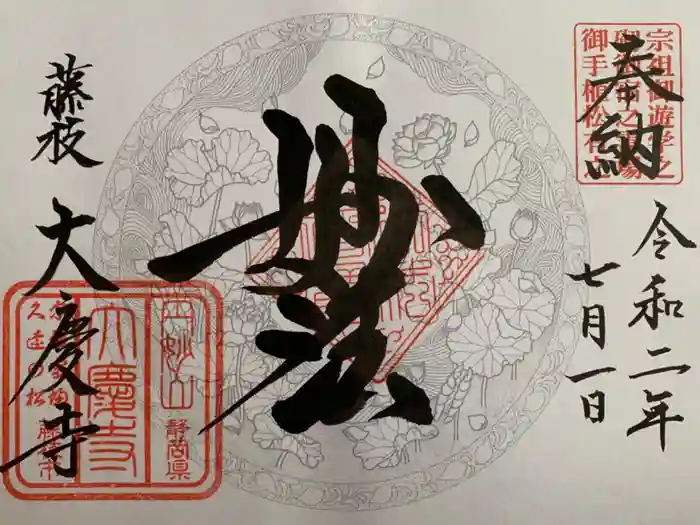 奉納
宗祖御遊学之
御手植松有
令和二年
七月一日
妙法
藤枝
大慶寺
円妙山
大慶寺
静岡県
久遠の松